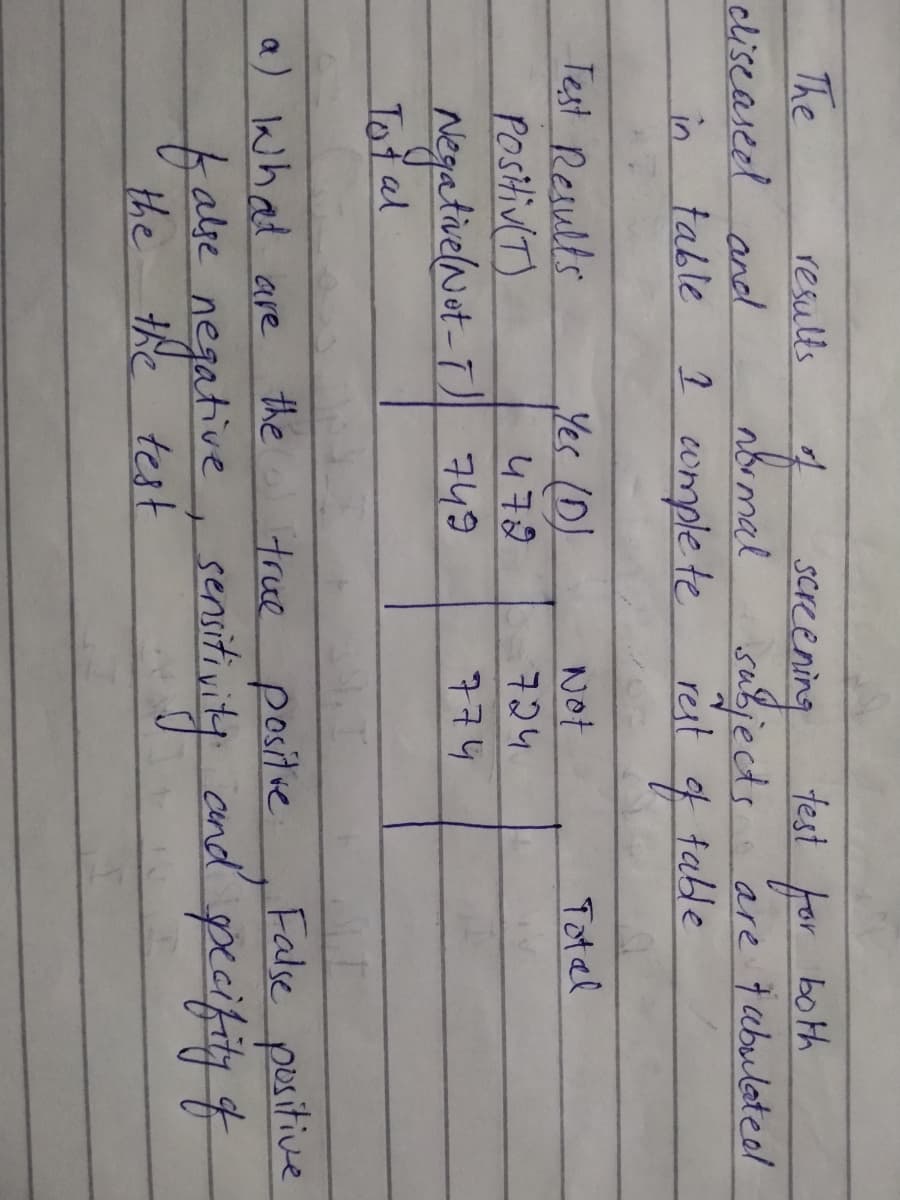 The results of screening test for both
diseased and normal subjects are tabulated
in table 1 complete rest of table
Test Results Yes (D) Not Total
Positiv(T) 472 724
Negative(Not-T) 749 774
Total
a) What are the true positive, False positive
false negative, sensitivity and specifity of
the the test